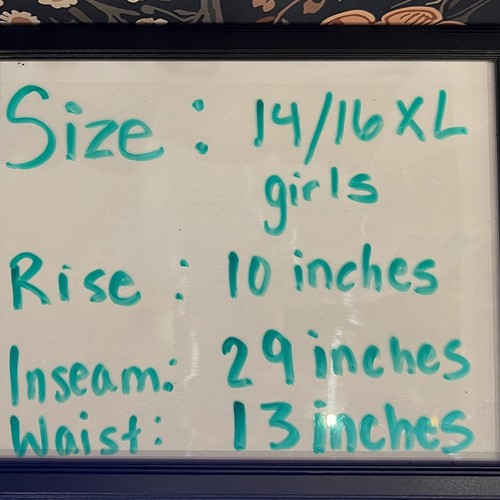 Size: 14/16 XL
girls
Rise: 10 inches
Inseam: 29 inches
Waist: 13 inches